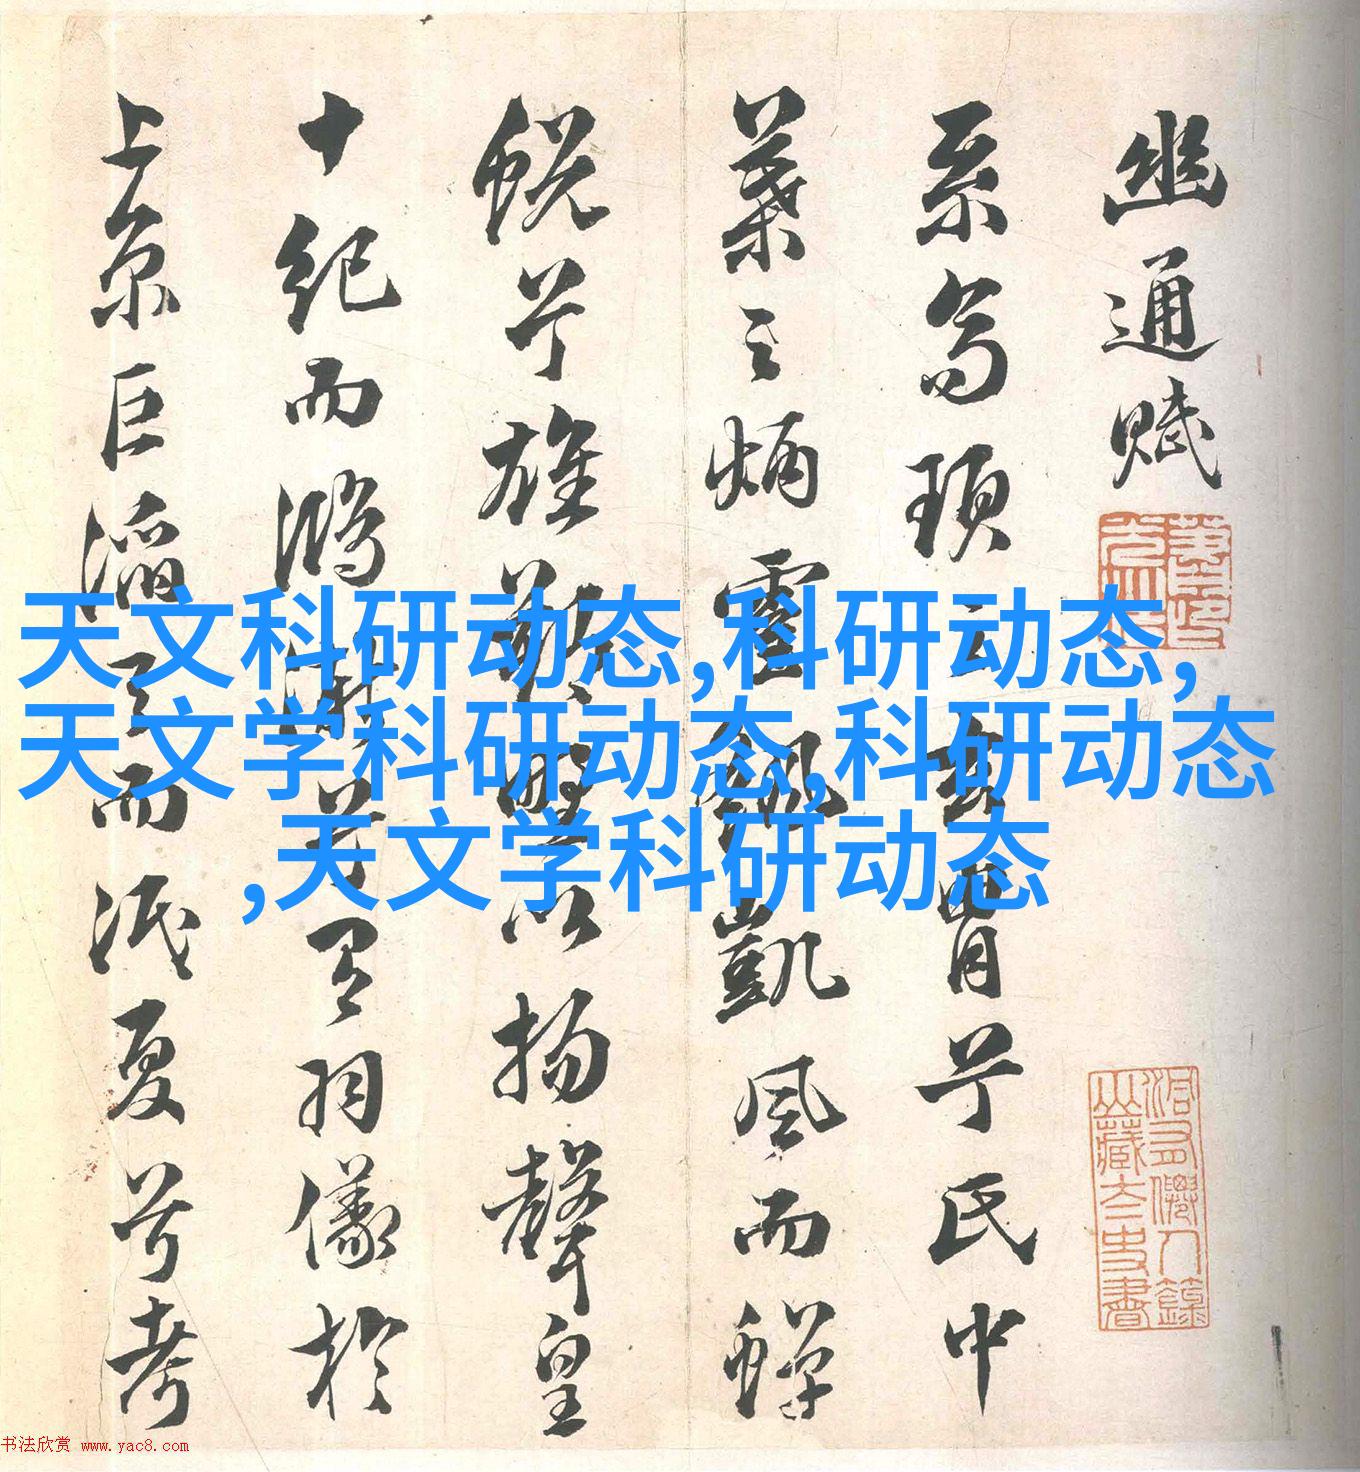 幽通賦
系高頊之玄胄兮氏中
葉之炳靈颻凱風而蟬
蛻兮雄朔野以揚聲皇
十紀而鴻漸兮有羽儀於
上京巨滔天而泯夏兮考
天文科研动态,科研动态,
天文学科研动态,科研动态
,天文学科研动态
书法欣赏 www.yac8.com